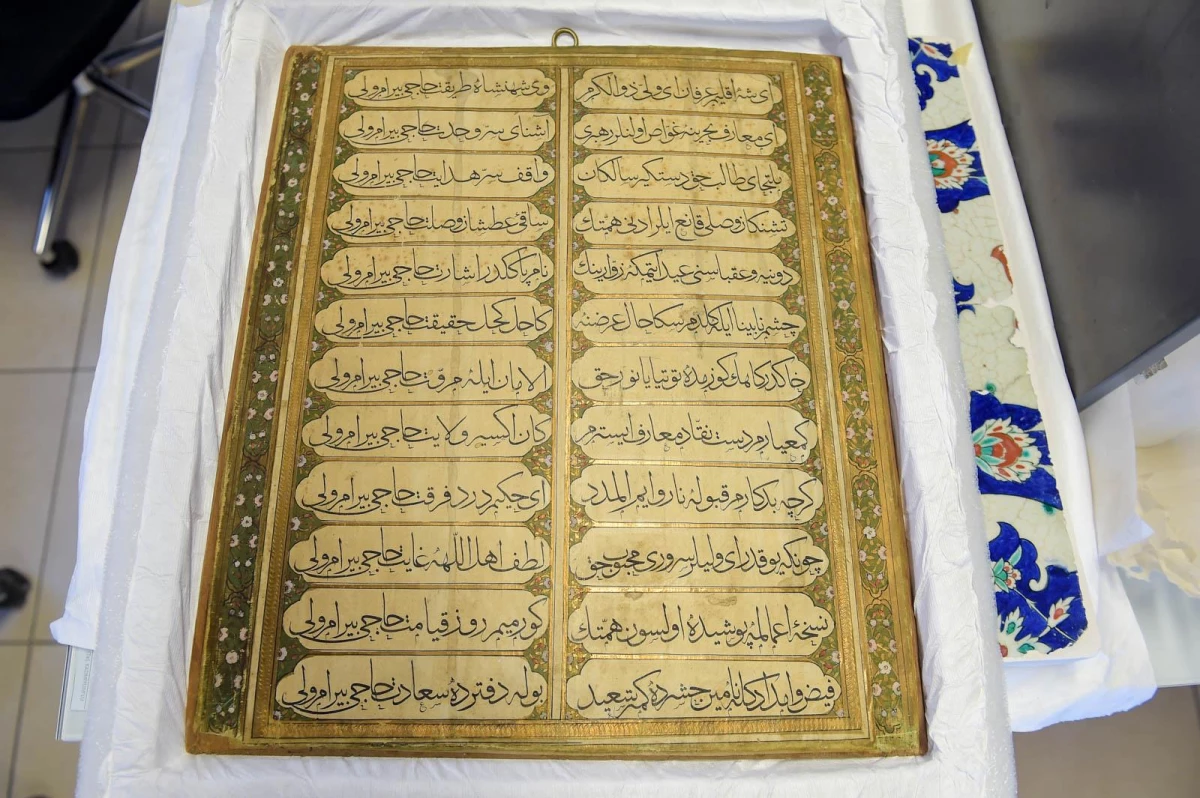 ای شه اقلیم عرفان ای ولی ذوالکرم وی شهنشاه طریقت حاجی بیرام ولی
ای معارف بحرینه غواص اولنلر رهبری آشنای سر وحدت حاجی بیرام ولی
ملتجای طالب حق دستکیر سالکان واقف سر هدایت حاجی بیرام ولی
تشنکان وصلی قانع ایلر ادنی همتك ساقئ عطشان وصلت حاجی بیرام ولی
دونیه و عقباسنی عید ایتمکه زوارینك نام پاککدر اشارت حاجی بیرام ولی
چشم نابینا ایله کلدم سکا حال عرضنه کحل حقیقت حاجی بیرام ولی
خاکدرکاهك کوزیده توتیا یا نور حق الامان ایله مروت حاجی بیرام ولی
کم عیارم دست نقاد معارف ایسترم کان اکسیر ولایت حاجی بیرام ولی
کرچه بدکارم قبوله ناروایم المدد ای حکیم درد فرقت حاجی بیرام ولی
چونکه یوقدر ای ولیلر سروری محبوب حق لطف اهل اللهه غایت حاجی بیرام ولی
نسخۀ اعمالمه پوشیده اولسون همتك کورمیم روز قیامت حاجی بیرام ولی
فیض حشرده کمتر سعید بوله دفترده سعادت حاجی بیرام ولی